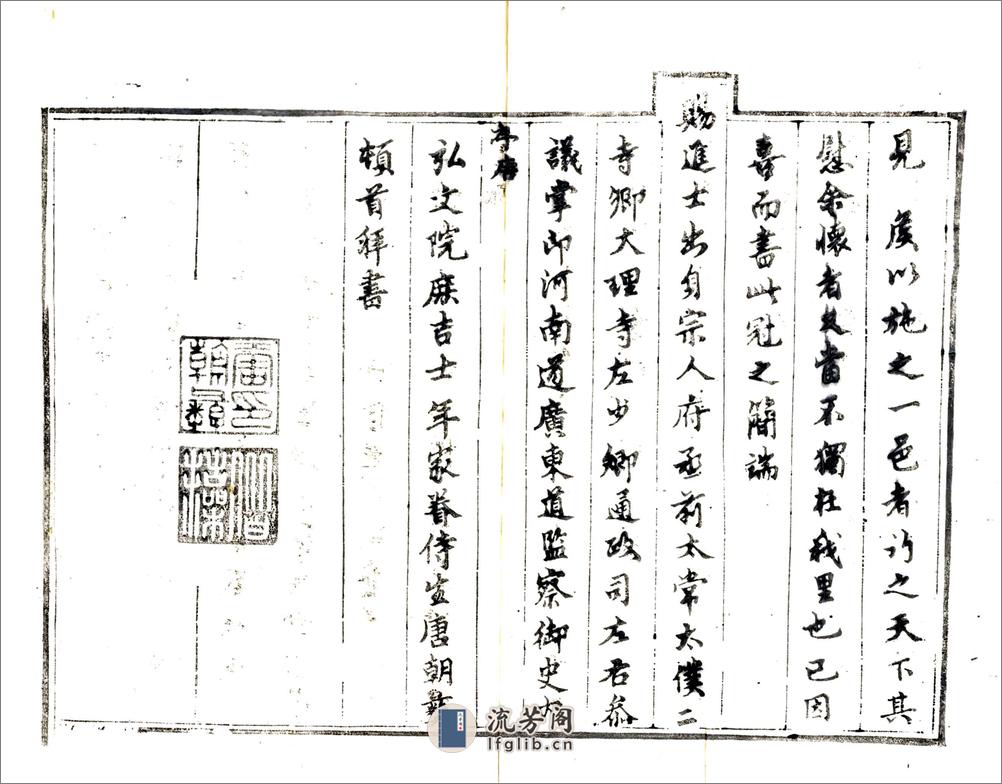 見 虞以施之一邑者行之天下其
慰余懷者又當不獨在我里也已因
喜而書此冠之簡端
賜進士出身宗人府丞前太常太僕二
寺卿大理寺左少卿通政司左右叅
議掌印河南道廣東道監察御史
弘文院庶吉士年家眷侍生唐朝彝
頓首拜書
唐印
朝彝
流芳阁
lfglib.cn